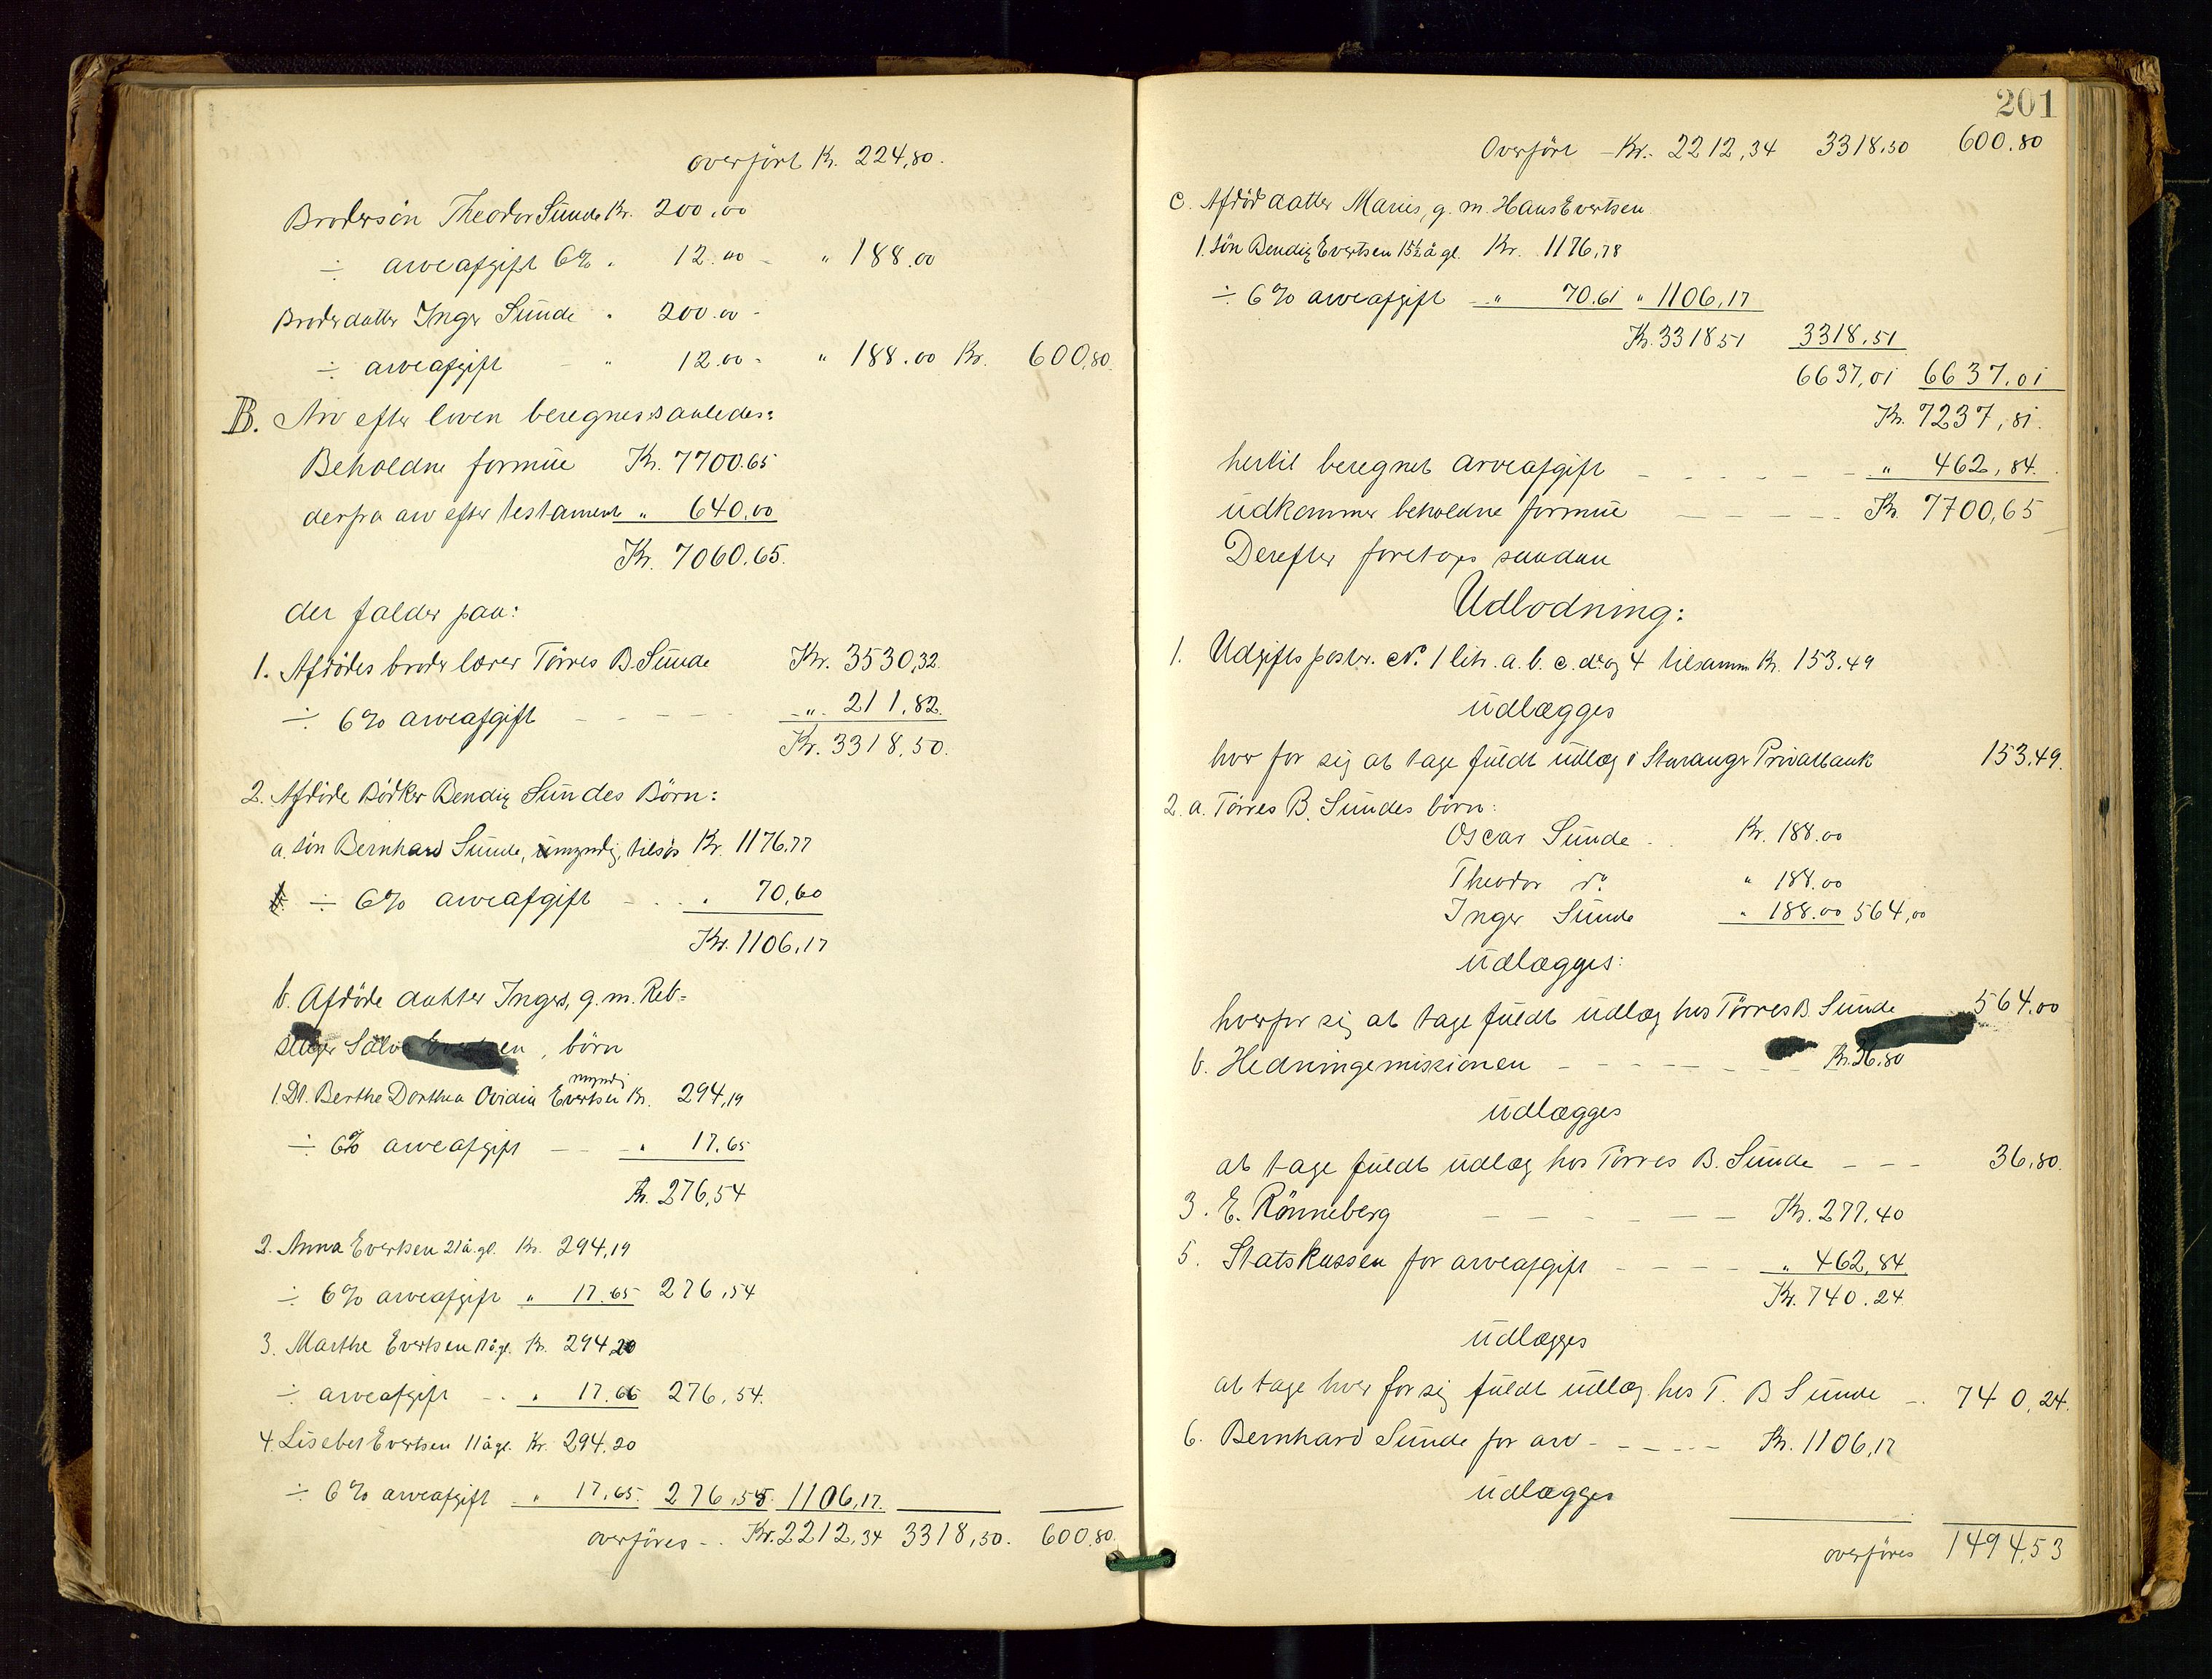 overført Kr. 224,80.
Brodersøn Theodor Sunde Kr. 200,00
÷ arveafgift 6% „ 12.00 - „ 188.00
Broderdatter Inger Sunde „ 200.00 -
÷ arveafgift - „ 12.00 - „ 188.00 Kr. 600,80.
B. Arv efter loven beregnes saaledes:
Beholdne formue Kr. 7700.65
derfra arv efter testament „ 640,00
Kr. 7060.65.
der falder paa:
1. Afdødes broder lærer Tørres B. Sunde Kr. 3530,32.
÷ 6% arveafgift - - - - - „ 211,82.
Kr. 3318,50.
2. Afdøde Bødker Bendix Sundes Børn:
a. søn Bernhard Sunde, umyndig, tilsjøs Kr. 1176,77
÷ 6% arveafgift - - - „ 70,60
Kr. 1106,17
b. Afdøde datter Inger, g. m. Reb=
slager Salve Evertsen, børn
1. Dt. Berthe Dorthea Ovidia Evertsen myndig Kr. 294,19
÷ 6% arveafgift — - „ 17.65
Kr. 276,54
2. Anna Evertsen 21 å. gl. Kr. 294,19
÷ 6% arveafgift „ 17.65 276,54
3. Marthe Evertsen å. gl. Kr. 294,20
÷ arveafgift - - „ 17.66 276,54.
4. Lisebet Evertsen 11 å gl. Kr. 294.20
÷ 6% arveafgift - „ 17,65. 276,55 1106,17.
overføres - . Kr. 2212,34 3318,50. 600,80.
201
Overført - Kr. 2212,34 3318,50 600.80
c. Afdød datter Maries, g. m. Hans Evertsen
1. søn Bendix Evertsen 15½ å gl. Kr. 1176,78
÷ 6% arveafgift - „ 70.61 „ 1106,17
Kr. 3318 51 3318,51
6637,01 6637.01
Kr. 7237,81.
hertil beregnet arveafgift - - - - - - „ 462,84.
udkommer beholdne formue - - - - - Kr. 7700,65
Derefter foretoges saadan
Udlodning:
1. Udgiftsposter. No. 1 litr. a. b. c. d og 4 tilsamm. Kr. 153.49
udlægges
hver for sig at tage fuldt udlæg i Stavanger Privatbank 153,49.
2. a. Tørres B. Sundes børn:
Oscar Sunde - . Kr. 188.00
Theodor do. „ 188.00
Inger Sunde „ 188.00 564,00
udlægges:
hver for sig at tage fuldt udlæg hos Tørres B. Sunde 564.00
b. Hedningemissionen - - - - - - - Kr. 36,80
udlægges
at tage fuldt udlæg hos Tørres B. Sunde - - - 36,80.
3. E. Rønneberg - - - - - - Kr. 277.40
5. Statskassen for arveafgift - - - - „ 462,84
Kr. 740.24
udlægges
at tage hver for sig fuldt udlæg hos T. B Sunde - . 740,24.
6. Bernhard Sunde for arv - - - - - Kr. 1106,17
udlægges
overføres 1494,53